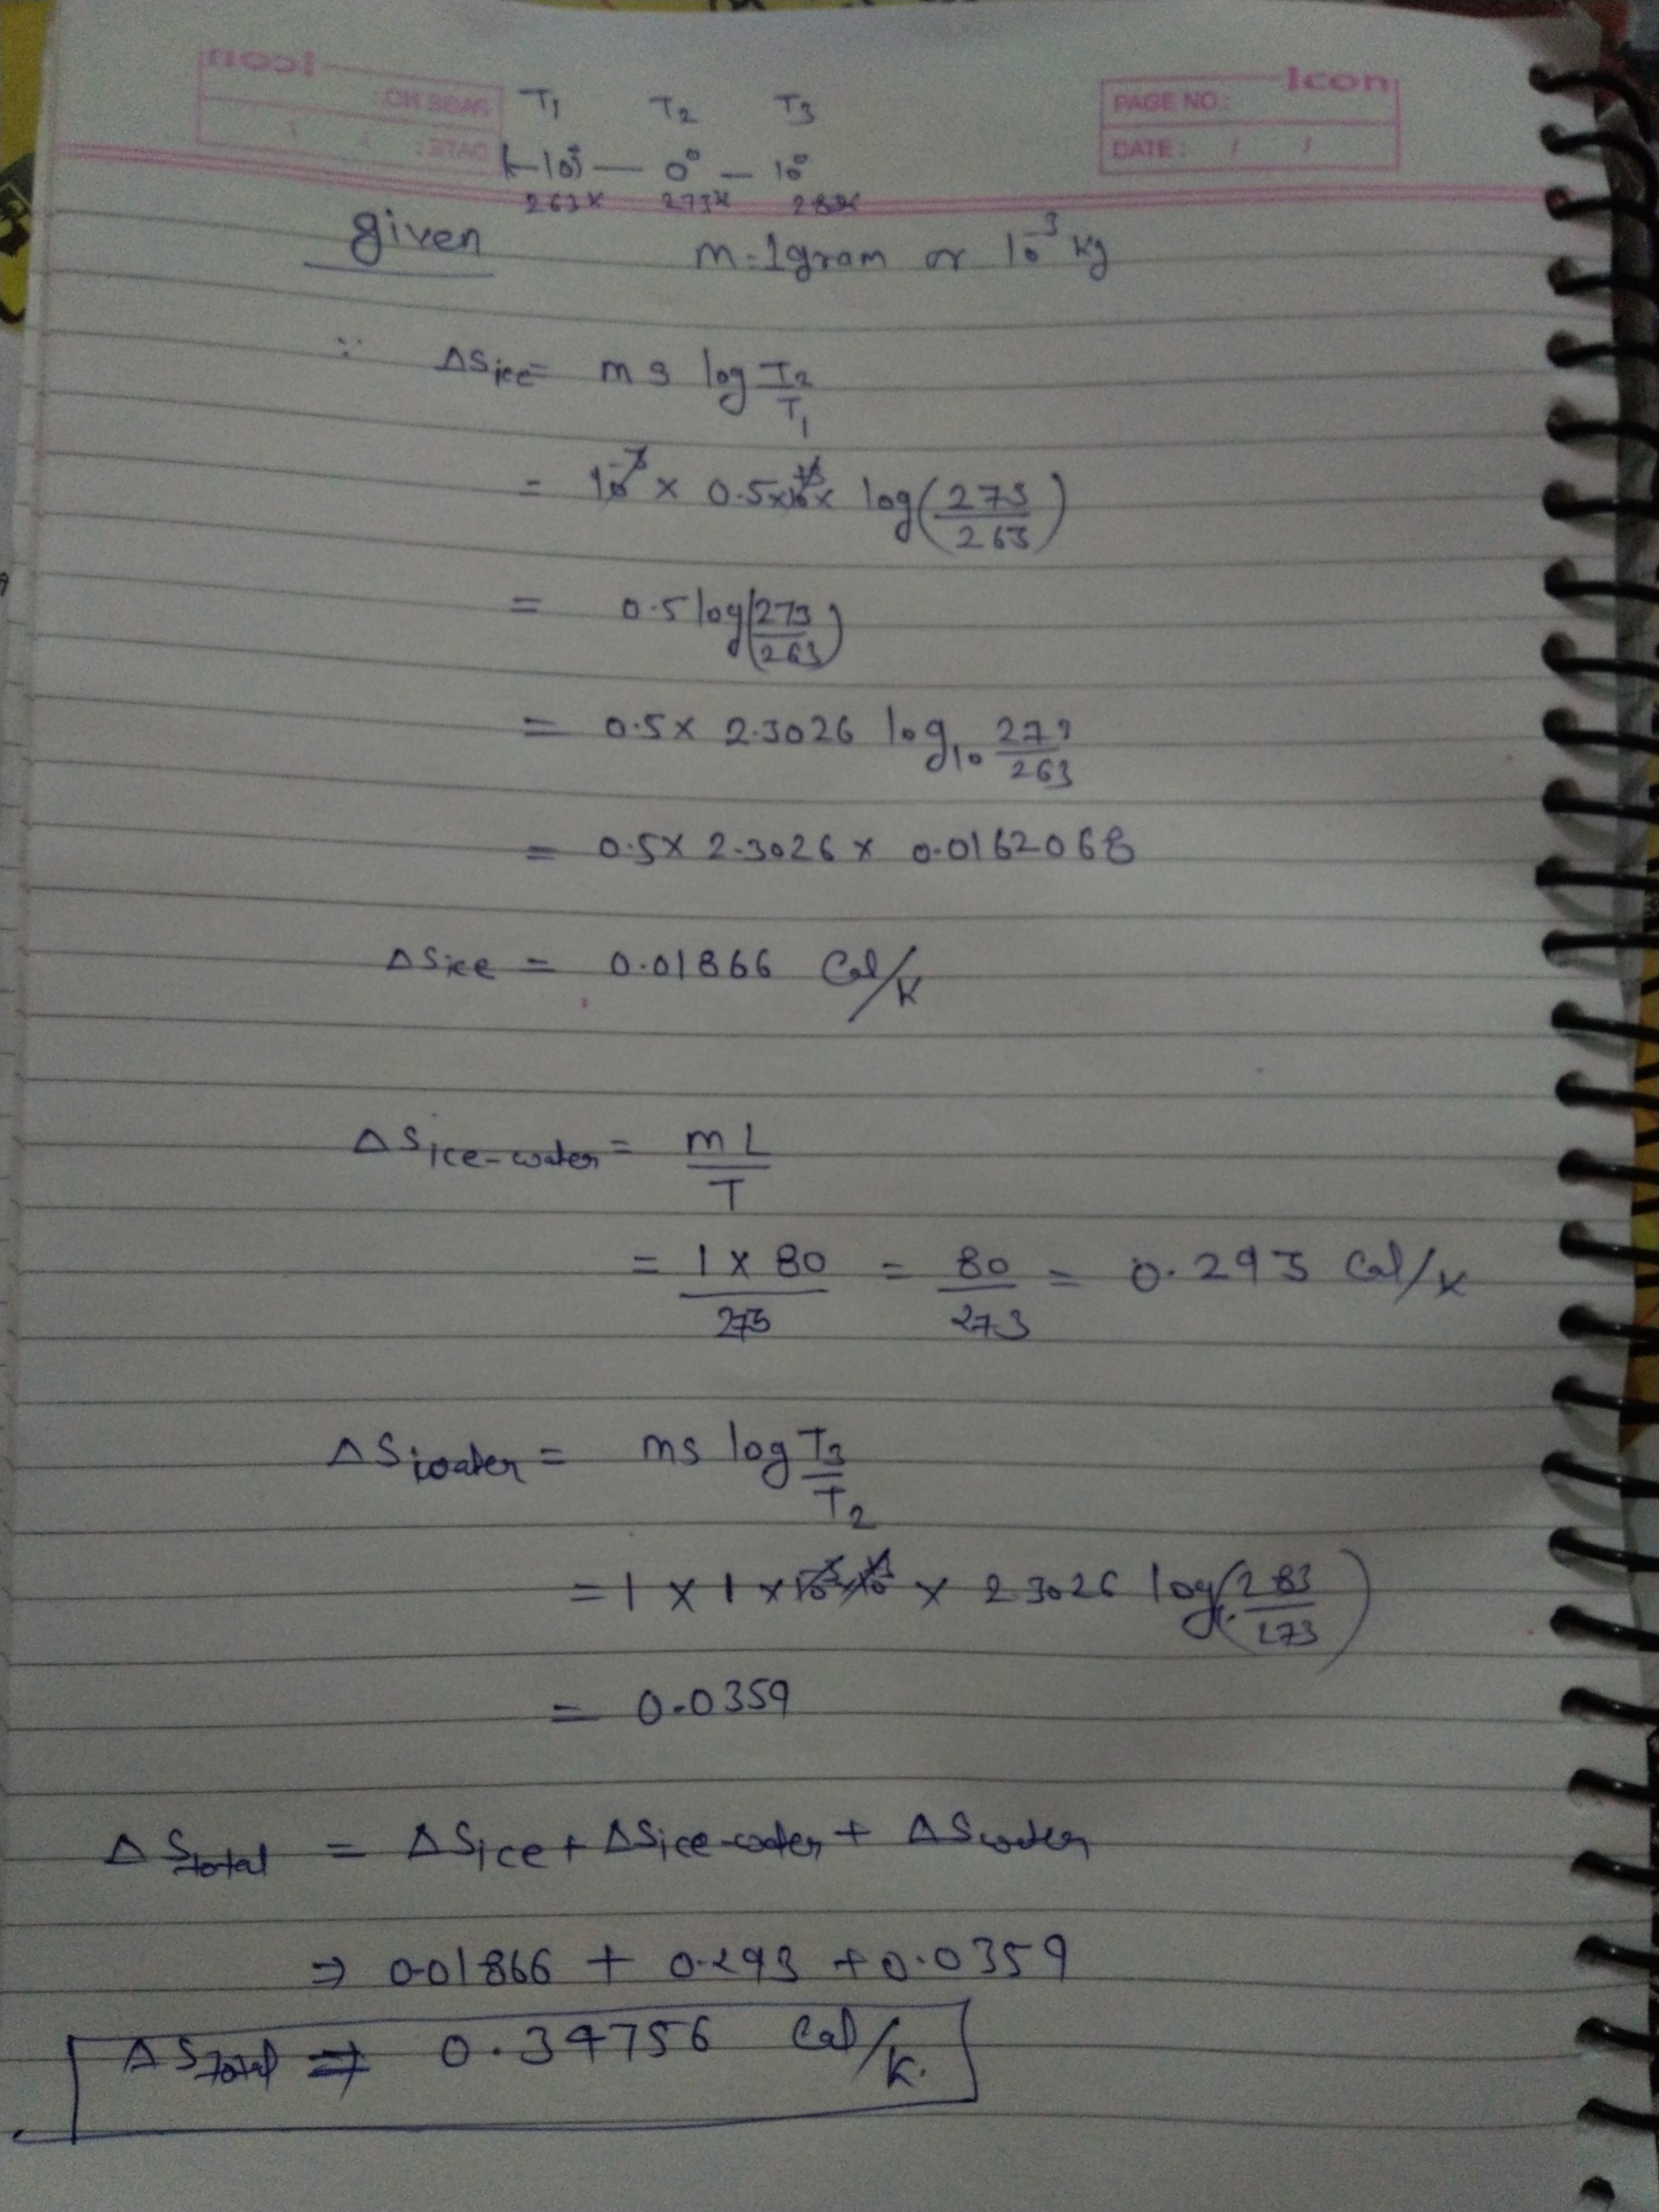 Icon
PAGE NO.:
DATE: / /
T₁ T₂ T₃
(-10°) — 0° — 10°
263K 273K 283K
given m=1gram or 10⁻³ kg
∵ ΔSice = ms log T₂/T₁
= 10⁻³ × 0.5×10⁺³× log(273/263)
= 0.5 log(273/263)
= 0.5× 2.3026 log₁₀ 273/263
= 0.5× 2.3026 × 0.0162068
ΔSice = 0.01866 Cal/K
ΔSice-water = mL/T
= 1×80/273 = 80/273 = 0.293 Cal/K
ΔSwater = ms log T₃/T₂
= 1 × 1 × 10⁻³×10³ × 2.3026 log(283/273)
= 0.0359
ΔStotal = ΔSice + ΔSice-water + ΔSwater
⇒ 0.01866 + 0.293 + 0.0359
ΔStotal ⇒ 0.34756 Cal/K.